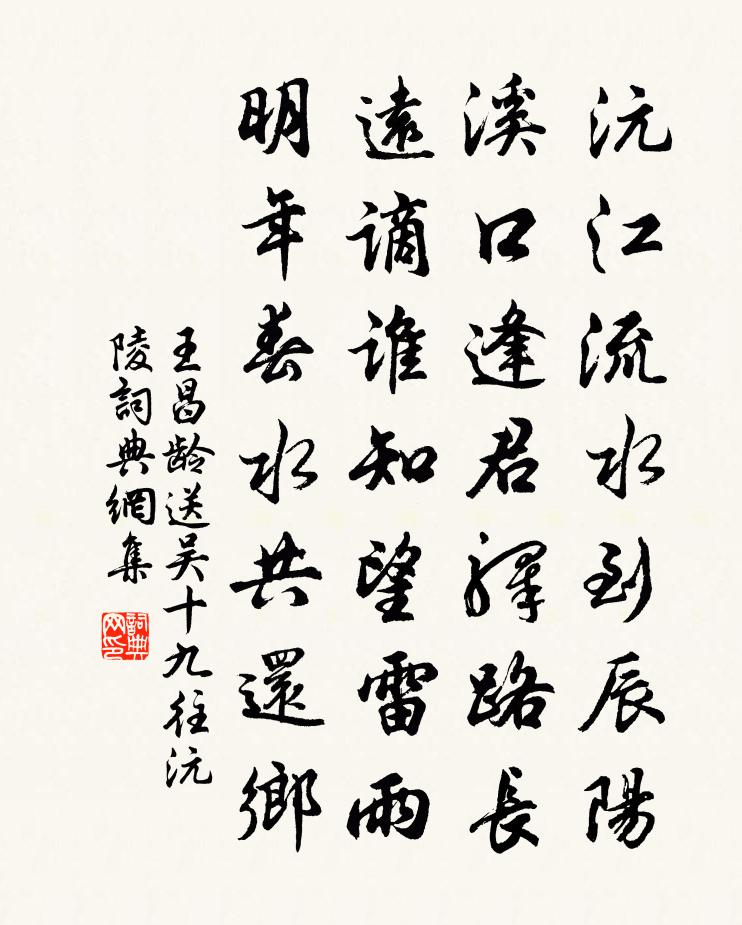 沅江流水到辰陽
溪口逢君驛路長
遠謫誰知望雷雨
明年春水共還鄉
王昌龄送吴十九往沅
陵詞典網集
詞典网印